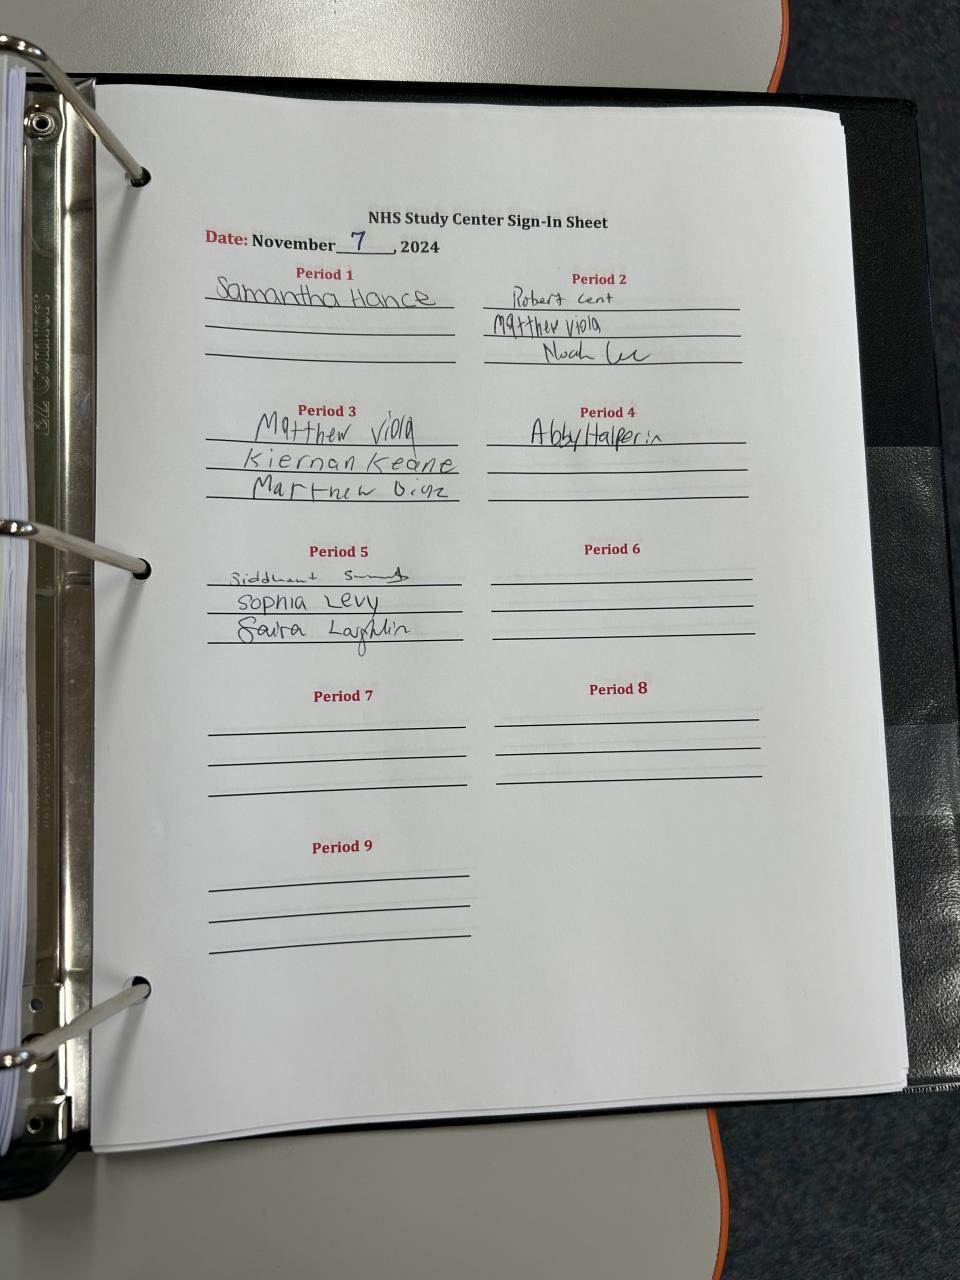 NHS Study Center Sign-In Sheet
Date: November 7, 2024
Period 1
Samantha Hance
Period 2
Robert Cent
Matthew Viola
Noah Lee
Period 3
Matthew Viola
Kiernan Keane
Matthew Diaz
Period 4
Abby Halperin
Period 5
Siddhant
Sophia Levy
Saira Laghlin
Period 6
Period 7
Period 8
Period 9